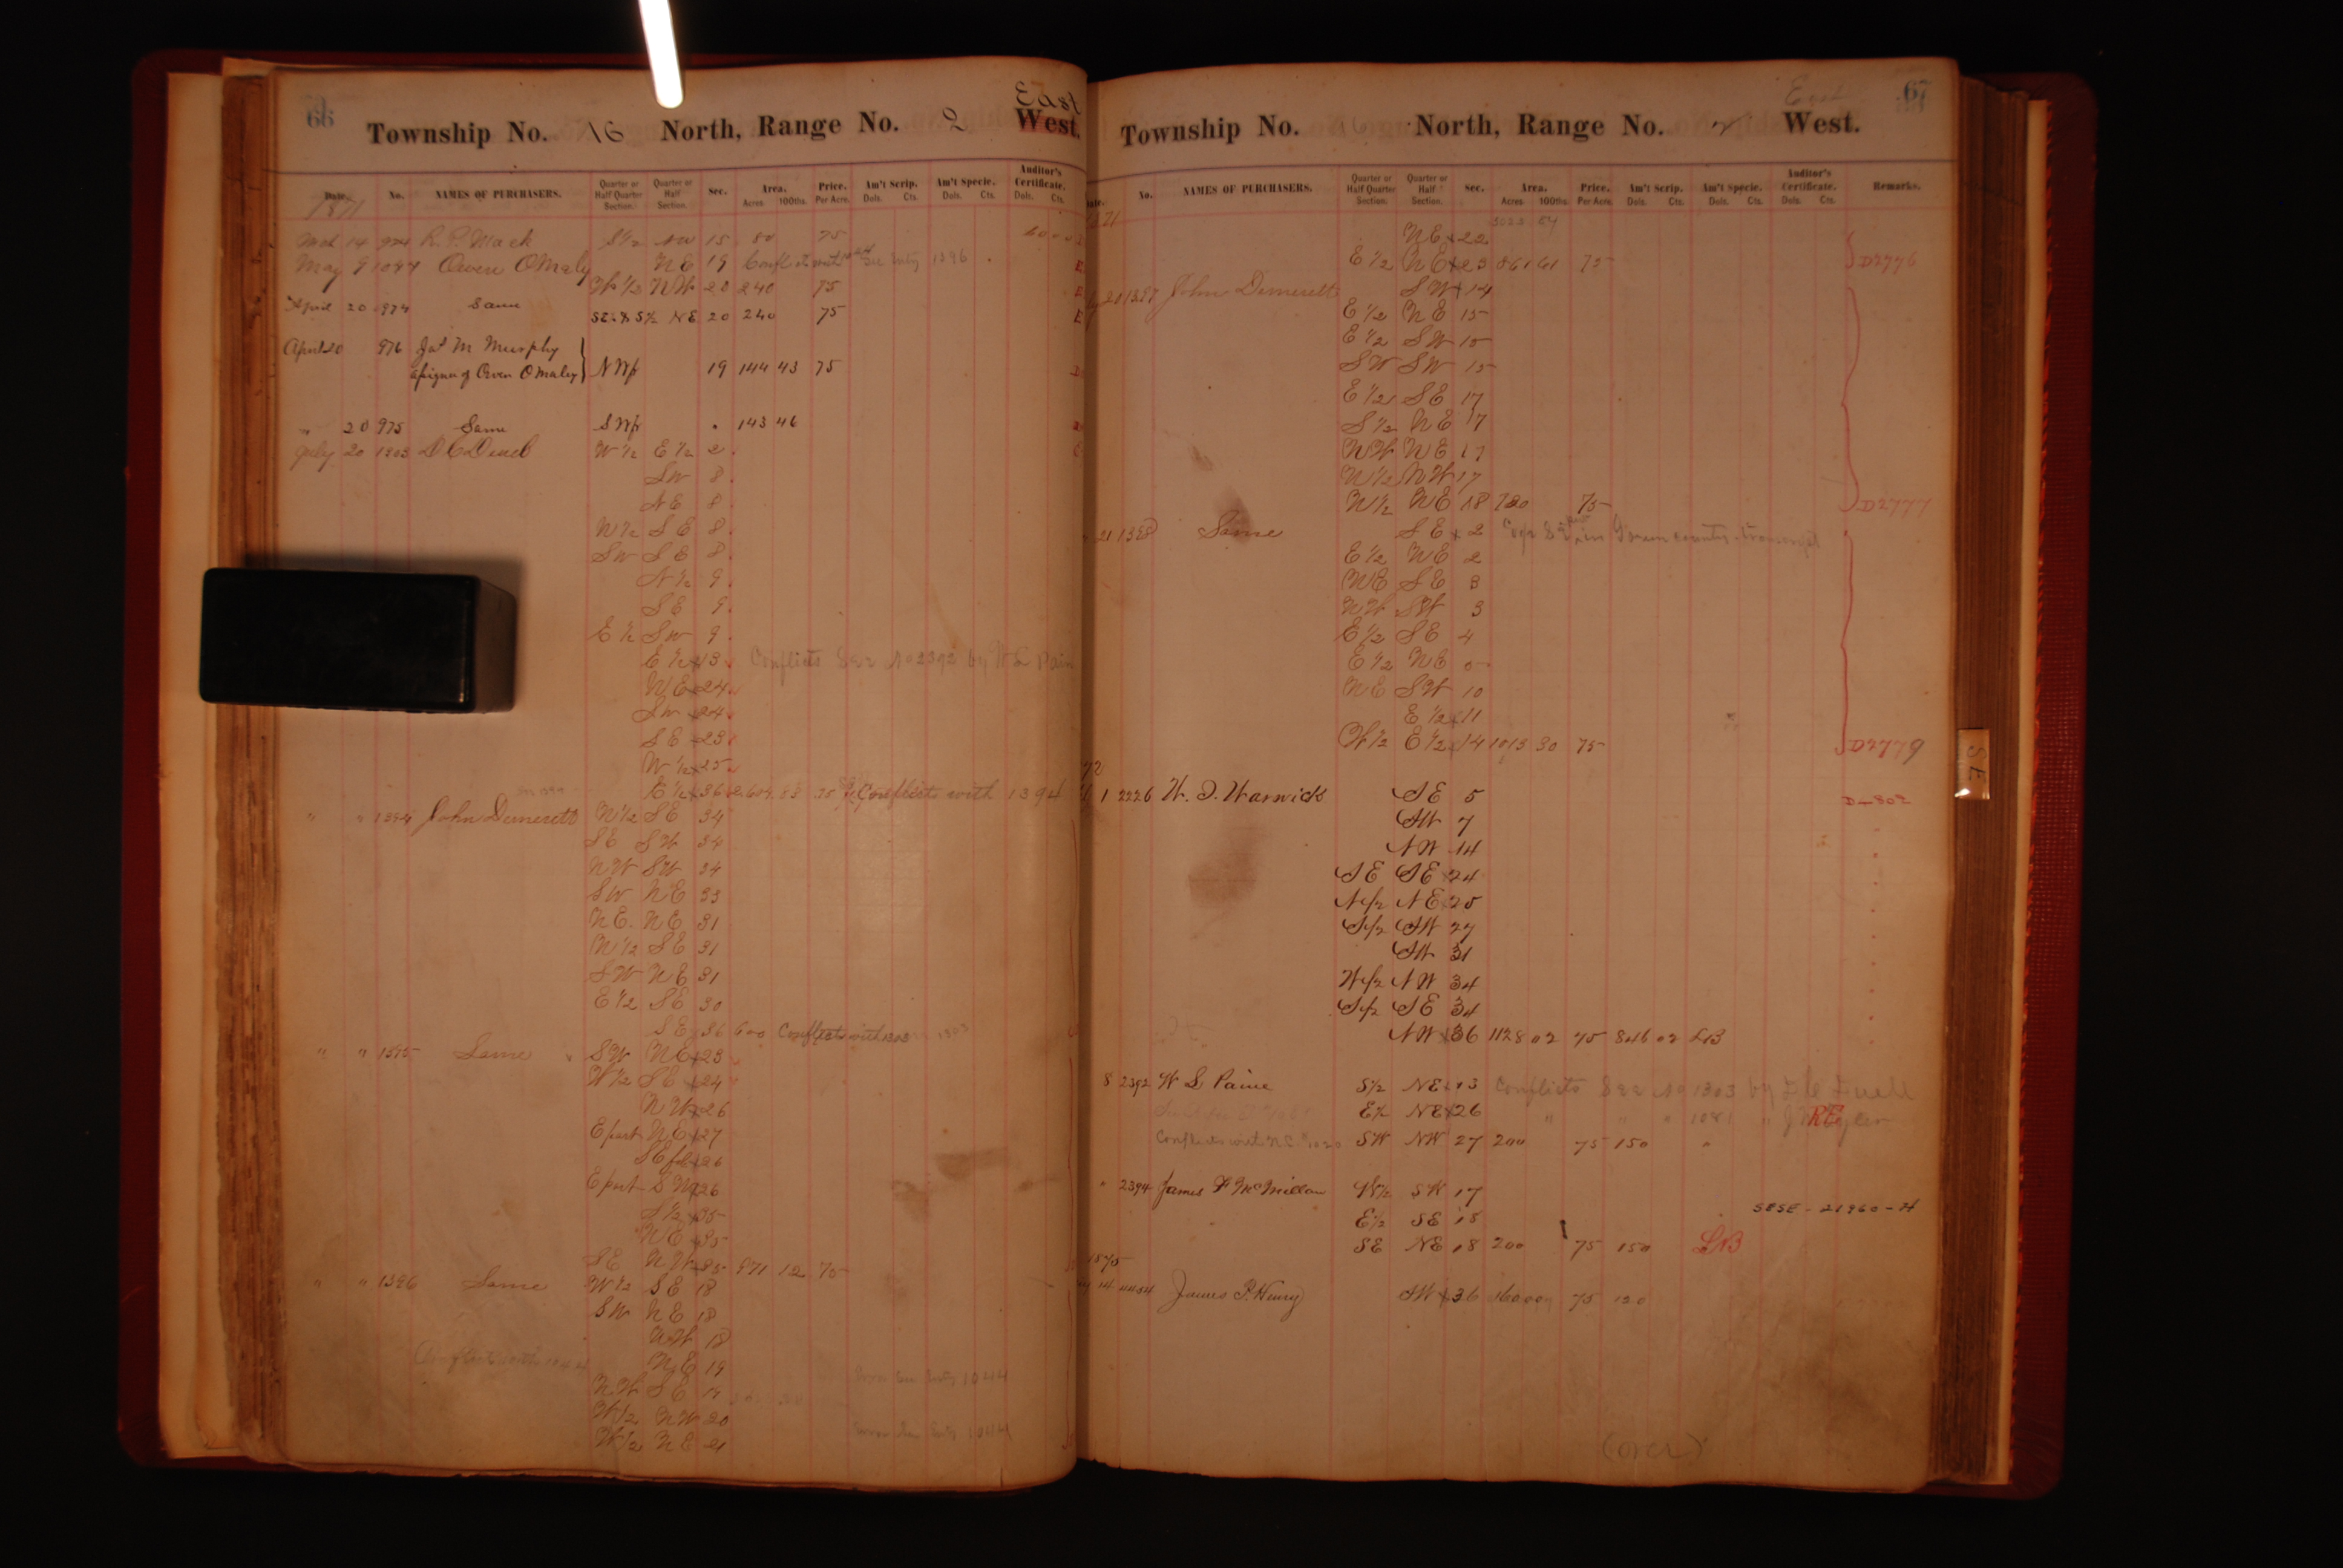 66
East
Township No. 16 North, Range No. 2 West.
Date. No. NAMES OF PURCHASERS. Quarter or Half Quarter Section. Quarter or Half Section. Sec. Area. Acres 100ths. Price. Per Acre. Am't Scrip. Dols. Cts. Am't Specie. Dols. Cts. Auditor's Certificate. Dols. Cts.
1871
Mch 14 R. P. Mack S1/2 NW 15 80 75
May 9 1044 Owen OMaly NE 19 Conflict with See Entry 1396
W1/2 NW 20 240 75
April 20 974 Same SE & S1/2 NE 20 240 75
April 20 976 Jas M Murphy
Assignee of Owen OMaley NW 19 144 43 75
" 20 975 Same SW 143 46
July 20 1303 D C Duell W1/2 E1/2 2
SW 8
NE 8
N1/2 SE 8
SW SE 8
N1/2 9
SE 9
E1/2 SW 9
E1/2 x 13 Conflicts See No 2392 by W S Pain
NE x 24
SW x 24
SE x 23
W1/2 x 25
E1/2 x 36 75 Conflicts with 1394
" " 1394 John Demerett N1/2 SE 34
SE SW 34
NW SW 34
SW NE 33
NE NE 31
N1/2 SE 31
SW NE 31
E1/2 SE 30
SE 36 600 Conflicts with 1303
" " 1395 Same SW NE x 23
W1/2 SE x 24
NW x 26
E part NE x 27
SE x 26
E part SW x 26
S1/2 x 35
NE x 35
SE NW x 35 971 12 75
" " 1396 Same W1/2 SE 18
SW NE 18
NW 18
Conflicts with 1044 NE 19
NW SE 19 Error See Entry 1044
W1/2 NW 20
W1/2 NE 21 Error See Entry 1044
67
East
Township No. 16 North, Range No. 2 West.
Date. No. NAMES OF PURCHASERS. Quarter or Half Quarter Section. Quarter or Half Section. Sec. Area. Acres 100ths. Price. Per Acre. Am't Scrip. Dols. Cts. Am't Specie. Dols. Cts. Auditor's Certificate. Dols. Cts. Remarks.
NE x 22
E1/2 NE x 23 861 61 75 D2776
21 1397 John Demerett SW x 14
E1/2 NE 15
E1/2 SW 15
SW SW 15
E1/2 SE 17
S1/2 NE 17
NW NE 17
N1/2 NW 17
N1/2 NE 18 720 75 D2777
21 1398 Same SE x 2
E1/2 NE 2
NE SE 3
NW SW 3
E1/2 SE 4
E1/2 NE 5
NE SW 10
E1/2 x 11
W1/2 E1/2 x 14 1013 30 75 D2779
72
1 2226 W. D. Warwick SE 5 D-802
SW 7
NW 14
SE SE x 24
N1/2 NE x 25
S1/2 SW 27
SW 31
W1/2 NW 34
S1/2 SE 34
NW x 36 1128 02 75 846 02 LB
8 2392 W S Paine S1/2 NE x 13 Conflicts See No 1303 by D C Duell
E1/2 NE x 26 " " " 1081 " RE
Conflicts with N.C. 1020 SW NW 27 200 75 150 "
" 2394 James F McMillan W1/2 SW 17
E1/2 SE 18 SESE - 21960 - H
SE NE 18 200 75 150 LB
1875
14 4454 James P. Henry SW x 36 160 00 75 120
(over)
SE